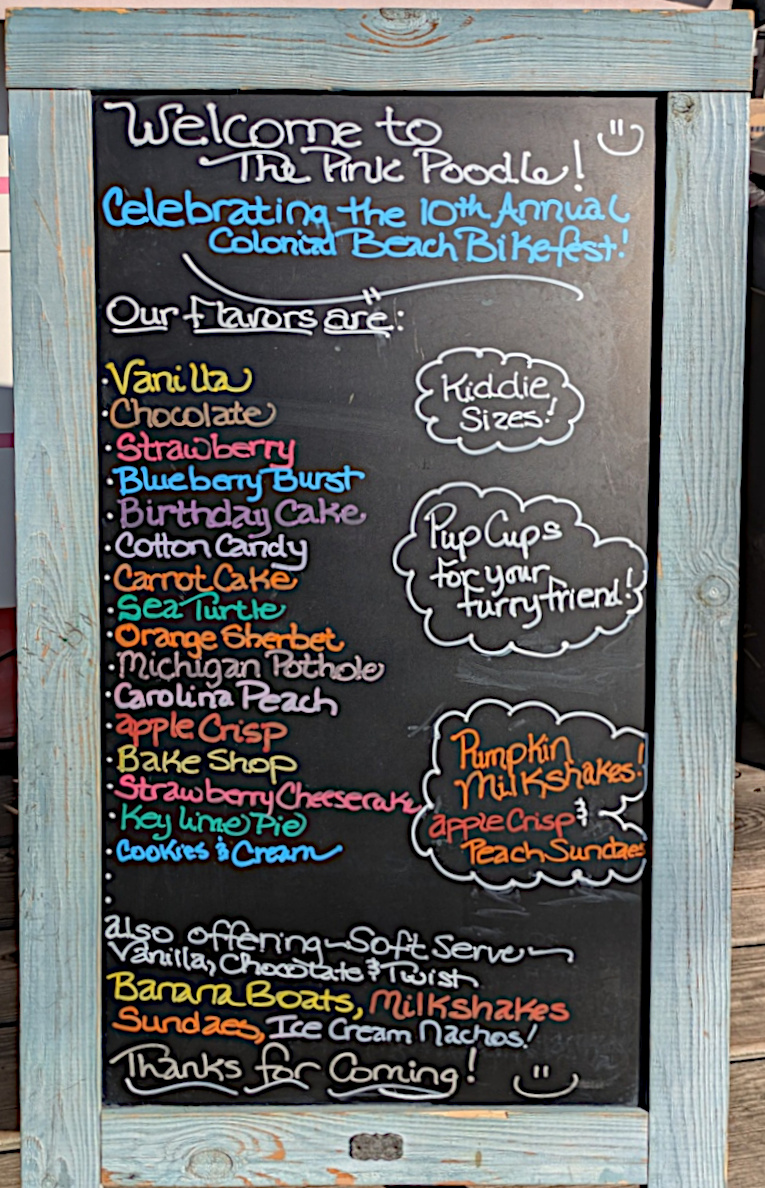 Welcome to
The Pink Poodle!
Celebrating the 10th Annual
Colonial Beach Bikefest!
Our Flavors are:
• Vanilla
• Chocolate
• Strawberry
• Blueberry Burst
• Birthday Cake
• Cotton Candy
• Carrot Cake
• Sea Turtle
• Orange Sherbet
• Michigan Pothole
• Carolina Peach
• apple Crisp
• Bake Shop
• Strawberry Cheesecake
• Key lime Pie
• Cookies & Cream
•
•
Kiddie
Sizes!
Pup Cups
for your
furry friend!
Pumpkin
Milkshakes!
apple Crisp &
Peach Sundaes
also offering~Soft Serve~
Vanilla, Chocolate & Twist
Banana Boats, Milkshakes
Sundaes, Ice Cream Nachos!
Thanks for Coming!